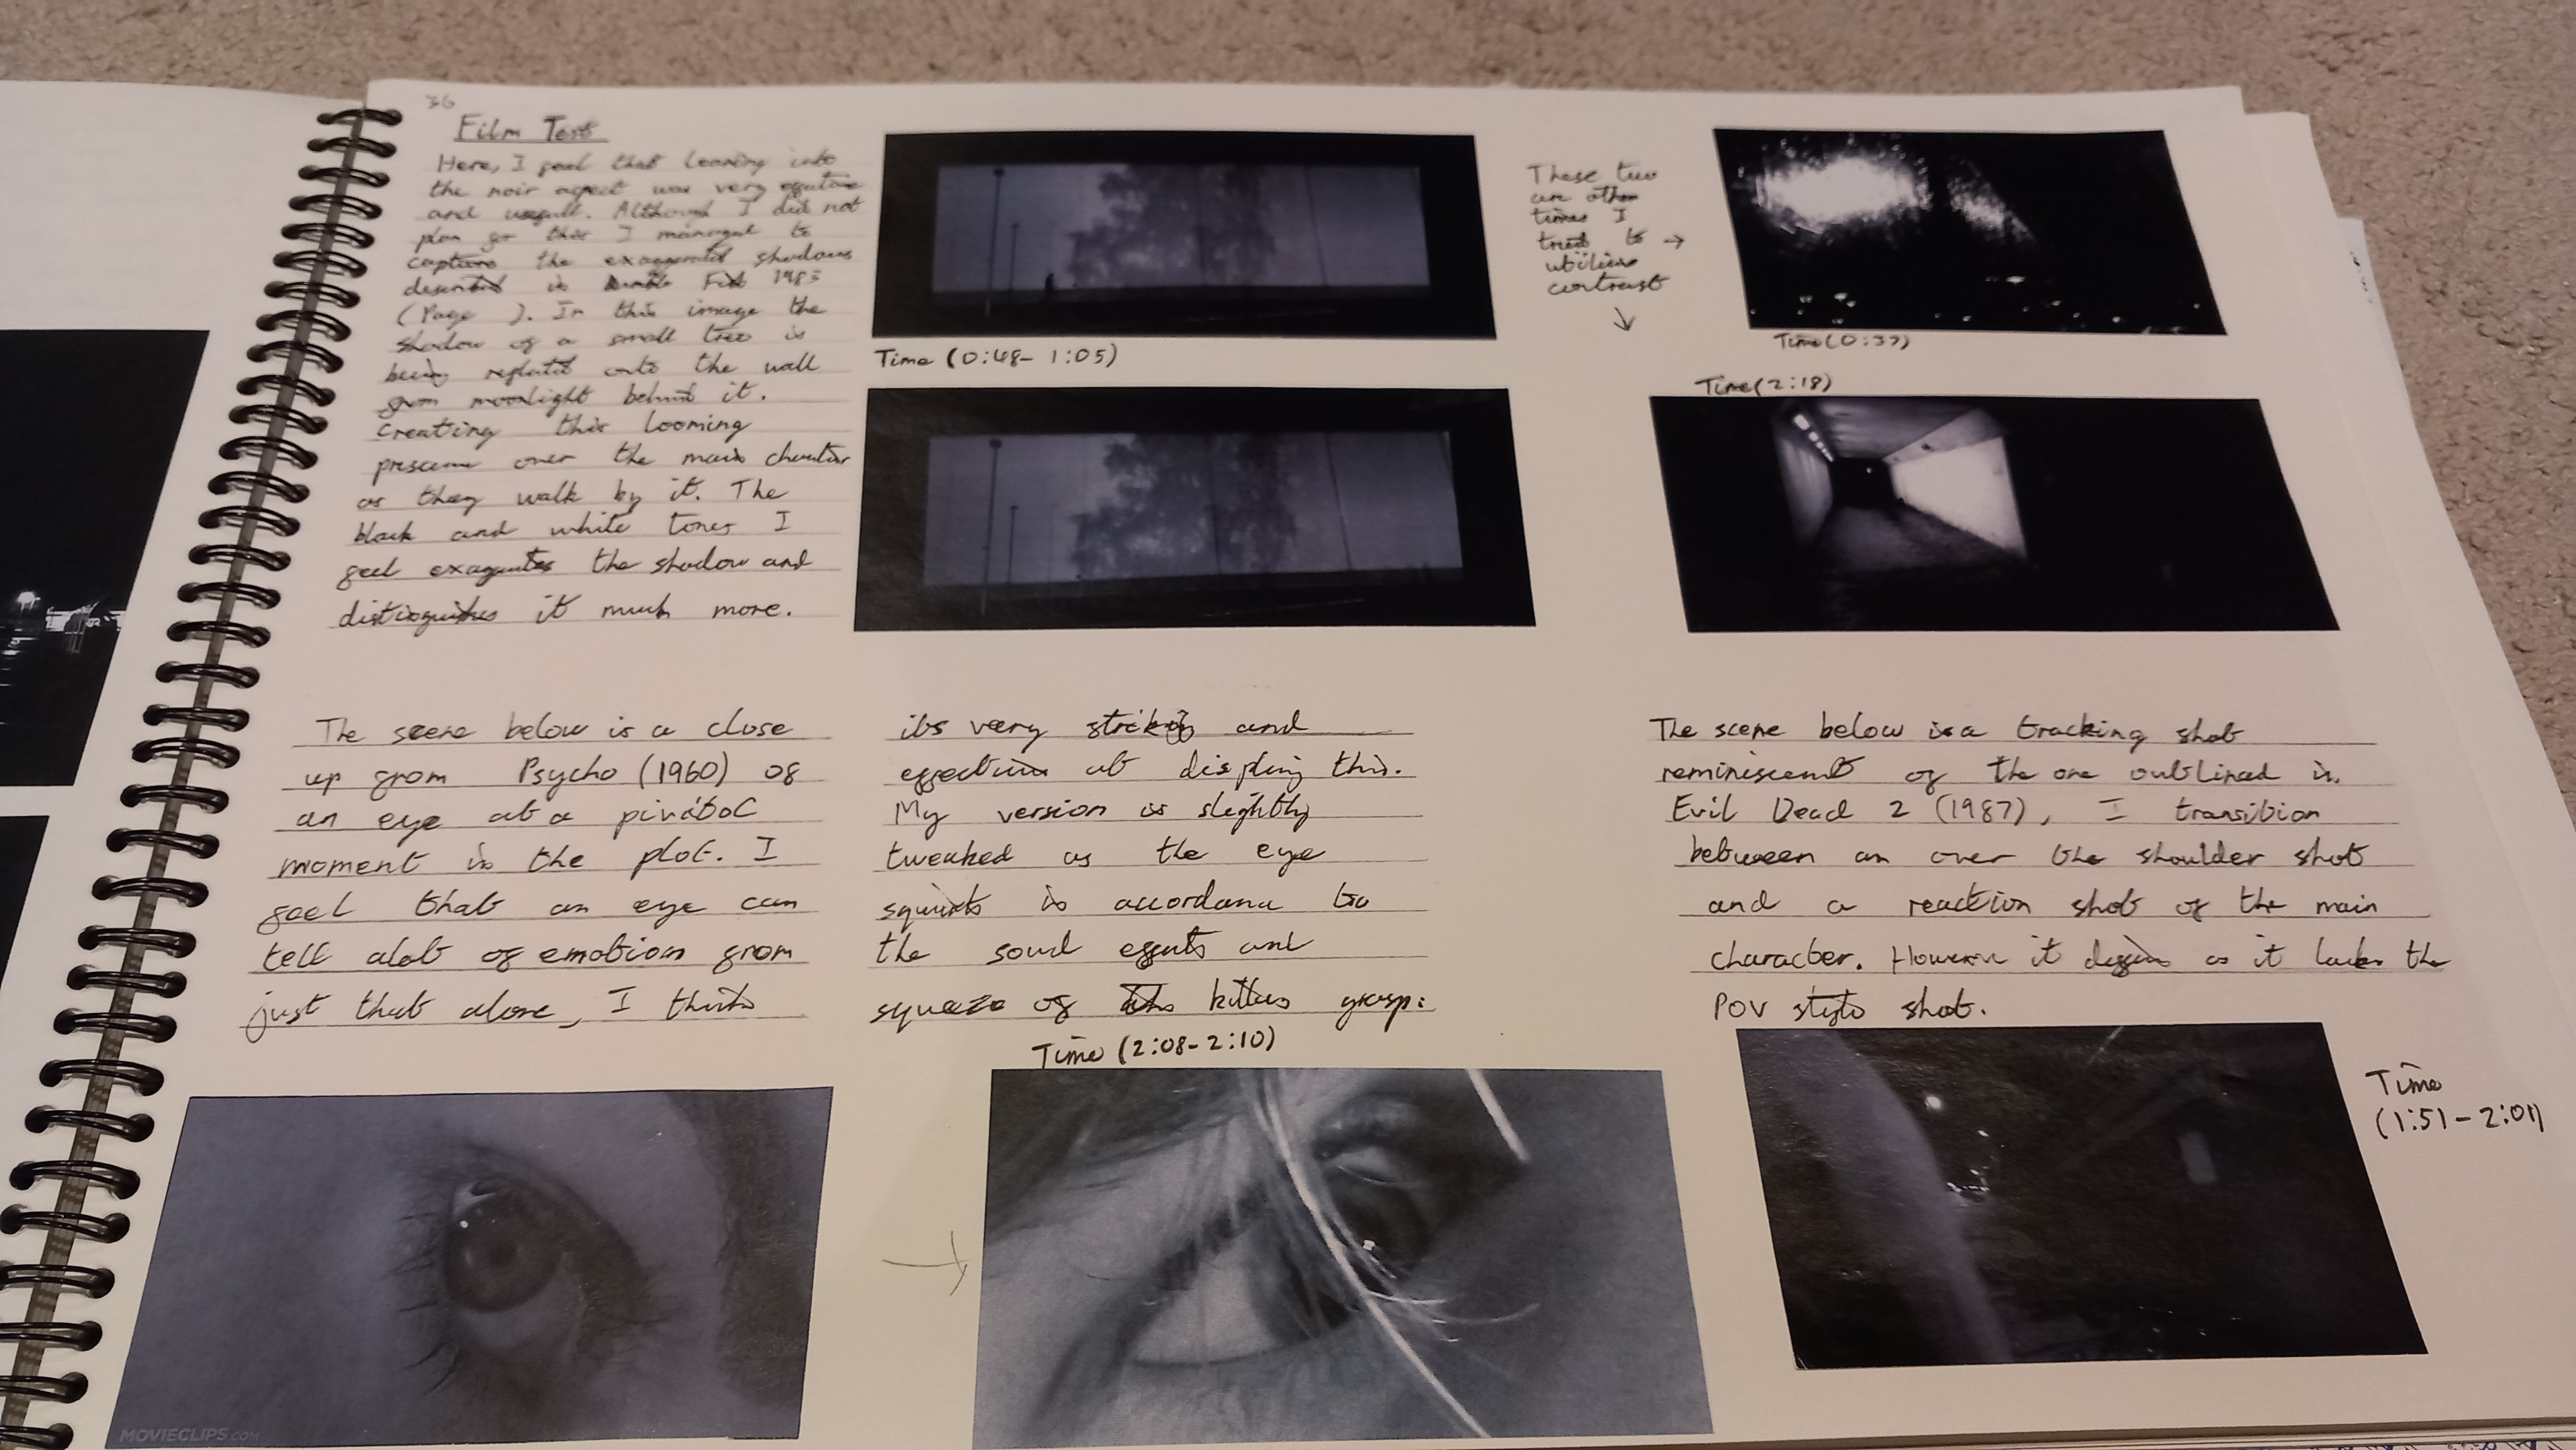 36
Film Test
Here, I feel that looking into
the noir aspect was very effective
and usefull. Although I did not
plan for this I managed to
capture the exaggerated shadows
described in Rumble Fish 1983
(Page ). In this image the
shadow of a small tree is
being onto the wall
from moonlight behind it.
Creating this looming
presence over the main
as they walk by it. The
black and white tones I
feel the shadow and
distinguishes it much more.
Time (0:48- 1:05)
These two
are other
times I
tried to →
utilise
contrast
↓
Time (0:37)
Time (2:18)
The scene below is a close
up from Psycho (1960) of
an eye at a pivotol
moment in the plot. I
feel that an eye can
tell alot of emotion from
just that alone, I think
its very and
effective at this.
My version is slightly
tweaked as the eye
squints in to
the sound effects and
squeeze of killers grasp:
Time (2:08-2:10)
The scene below is a tracking shot
reminiscent of the one outlined in
Evil Dead 2 (1987), I transition
between an over the shoulder shot
and a reaction shot of the main
character. However it as it lacks the
POV style shot.
Time
(1:51-2:01)
MOVIECLIPS.COM